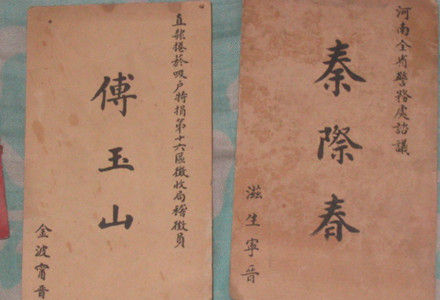 河南全省警務處諮議
秦際春
滋生寧晉
直隸捲菸吸戶特捐第十六區徵收局稽徵員
傅玉山
金波甯晉